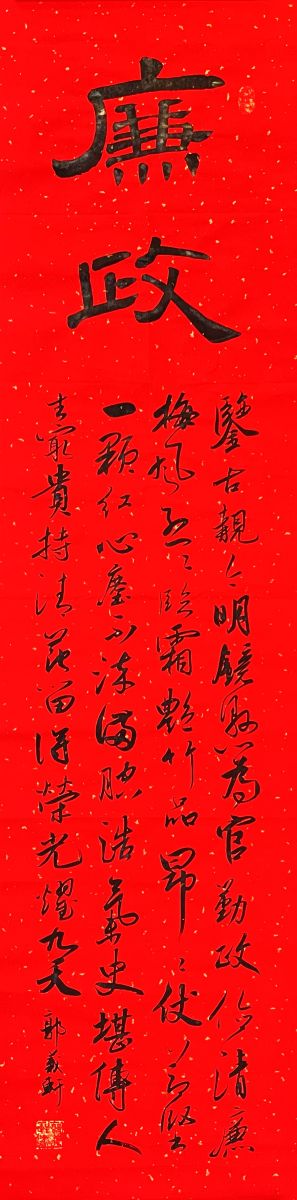 廉
政
鑒古觀今明鏡懸為官勤政清廉
梅風烈々臨霜艷竹品昂々仗節堅
一顆紅心塵不染滿腔浩氣史堪傳人
生最貴持清範留得榮光耀九天
郭義軒